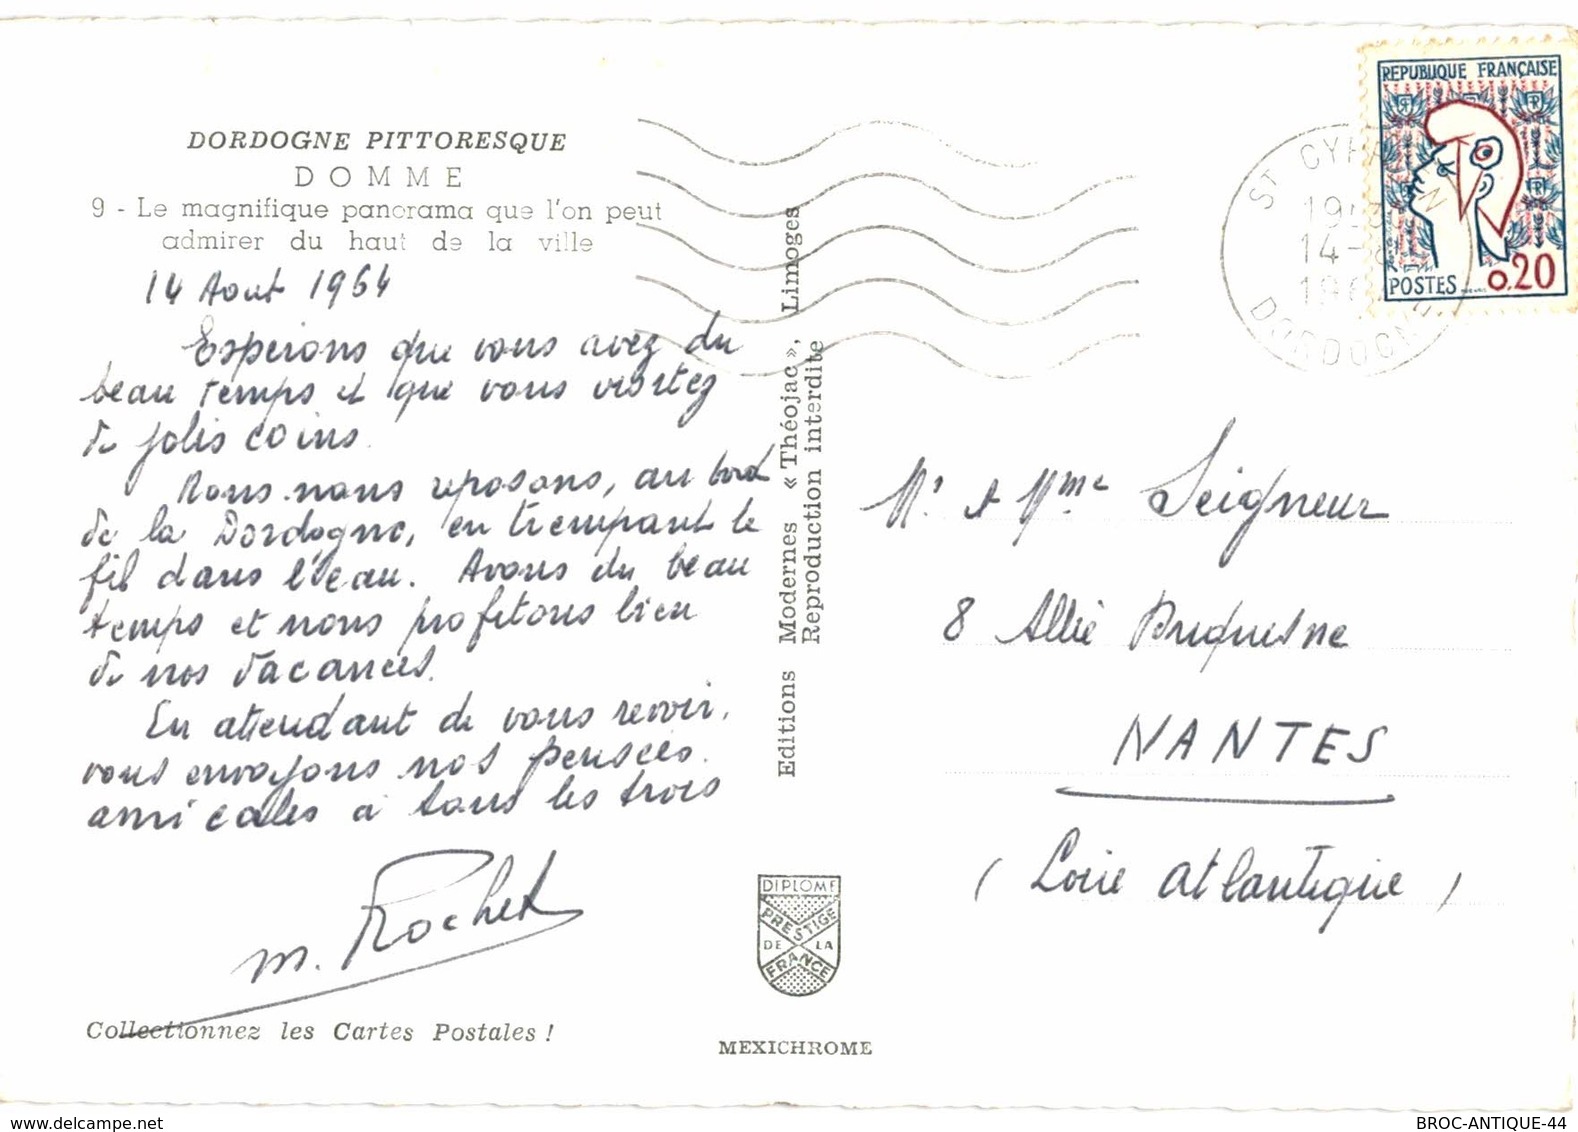 DORDOGNE PITTORESQUE
DOMME
9 - Le magnifique panorama que l'on peut
admirer du haut de la ville
14 Aout 1964
Esperons que vous avez du
beau temps et que vous visitez
de jolis coins.
Nous nous reposons, au bord
de la Dordogne, en trempant le
fil dans l'eau. Avons du beau
temps et nous profitons bien
de nos vacances.
En attendant de vous revoir,
vous envoyons nos pensées
amicales à tous les trois
m. Rochet
Collectionnez les Cartes Postales !
Editions Modernes « Théojac », Limoges
Reproduction interdite
DIPLOME
PRESTIGE
DE LA
FRANCE
MEXICHROME
REPUBLIQUE FRANÇAISE
POSTES 0,20
ST CYPRIEN
14-8
DORDOGNE
Mr et Mme Seigneur
8 Allée Duquesne
NANTES
(Loire atlantique)
delcampe.net
BROC-ANTIQUE-44